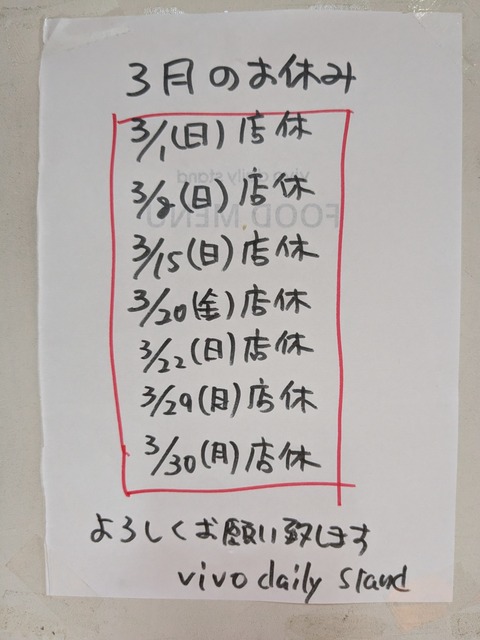 3月のお休み
3/1(日)店休
3/8(日)店休
3/15(日)店休
3/20(金)店休
3/22(日)店休
3/29(日)店休
3/30(月)店休
よろしくお願い致します
vivo daily stand
vivo daily stand
FOOD MENU